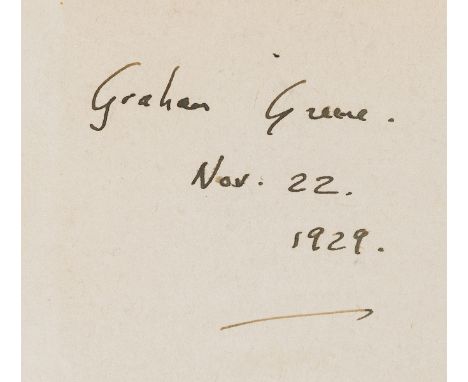 Graham Greene.
Nov. 22.
1929.